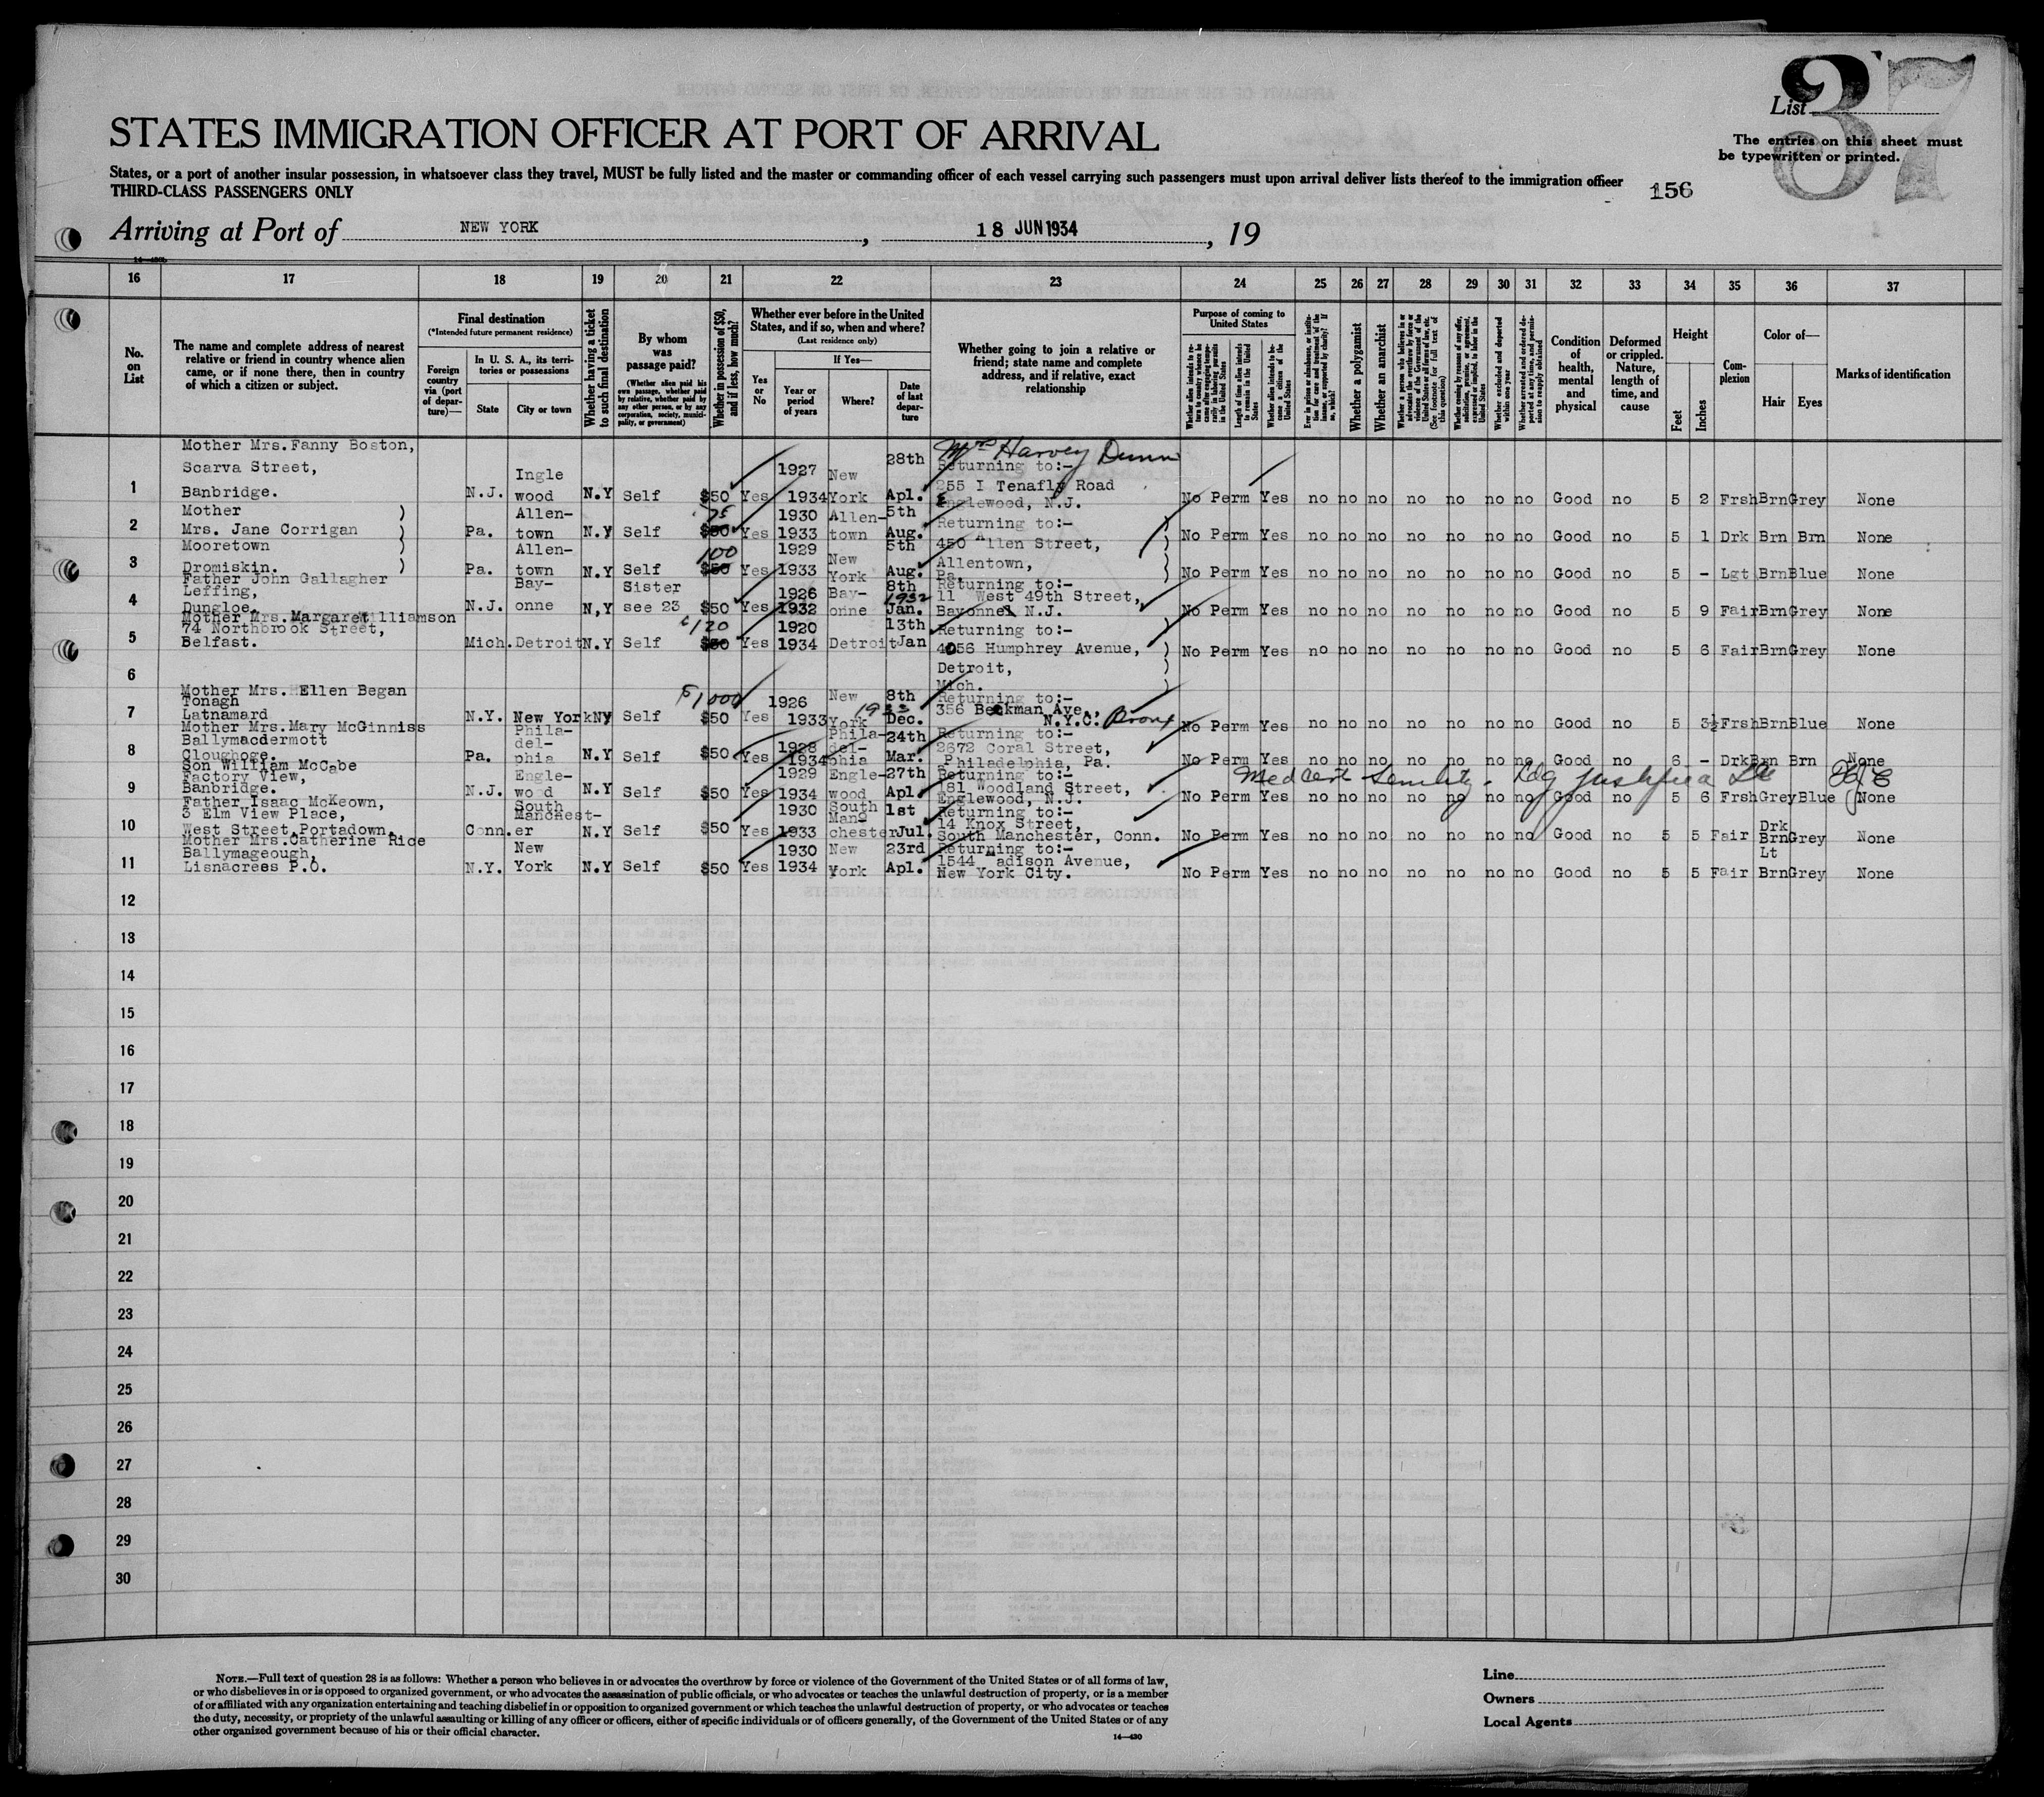 List 37
STATES IMMIGRATION OFFICER AT PORT OF ARRIVAL
The entries on this sheet must
be typewritten or printed.
States, or a port of another insular possession, in whatsoever class they travel, MUST be fully listed and the master or commanding officer of each vessel carrying such passengers must upon arrival deliver lists thereof to the immigration officer
THIRD-CLASS PASSENGERS ONLY
156
Arriving at Port of NEW YORK, 18 JUN 1934, 19
16 17 18 19 20 21 22 23 24 25 26 27 28 29 30 31 32 33 34 35 36 37
No. on List
The name and complete address of nearest relative or friend in country whence alien came, or if none there, then in country of which a citizen or subject.
Final destination
(*Intended future permanent residence)
Foreign country via (port of departure)—
In U. S. A., its territories or possessions
State City or town
Whether having a ticket to such final destination
By whom was passage paid?
(Whether alien paid his own passage, whether paid by relative, whether paid by any other person, or by any corporation, society, municipality, or government)
Whether in possession of $50, and if less, how much?
Whether ever before in the United States, and if so, when and where?
(Last residence only)
Yes or No
If Yes—
Year or period of years
Where?
Date of last departure
Whether going to join a relative or friend; state name and complete address, and if relative, exact relationship
Purpose of coming to United States
Whether alien intends to return to country whence he came after engaging temporarily in laboring pursuits in the United States
Length of time alien intends to remain in the United States
Whether alien intends to become a citizen of the United States
Ever in prison or almshouse, or institution for care and treatment of the insane, or supported by charity? If so, which?
Whether a polygamist
Whether an anarchist
Whether a person who believes in or advocates the overthrow by force or violence of the Government of the United States or all forms of law, etc. (See footnote for full text of this question)
Whether coming by reason of any offer, solicitation, promise, or agreement, expressed or implied, to labor in the United States
Whether excluded and deported within one year
Whether arrested and ordered deported at any time, and permission to reapply obtained
Condition of health, mental and physical
Deformed or crippled. Nature, length of time, and cause
Height
Feet Inches
Complexion
Color of—
Hair Eyes
Marks of identification
1 Mother Mrs.Fanny Boston, Scarva Street, Banbridge. N.J. Inglewood N.Y Self $50 Yes 1927 1934 New York 28th Apl. Mrs Harvey Dunn Returning to:- 255 I Tenafly Road Englewood, N.J. No Perm Yes no no no no no no no Good no 5 2 Frsh Brn Grey None
2 Mother Mrs. Jane Corrigan Pa. Allentown N.Y Self 75 $50 Yes 1930 1933 Allentown 5th Aug. Returning to:- 450 Allen Street, No Perm Yes no no no no no no no Good no 5 1 Drk Brn Brn None
3 Mooretown Dromiskin. Pa. Allentown N.Y Self 100 $50 Yes 1929 1933 New York 5th Aug. Allentown, Pa. No Perm Yes no no no no no no no Good no 5 - Lgt Brn Blue None
4 Father John Gallagher Leffing, Dungloe. N.J. Bayonne N,Y Sister see 23 $50 Yes 1926 1932 Bayonne 8th 1932 Jan. Returning to:- 11 West 49th Street, Bayonne N.J. No Perm Yes no no no no no no no Good no 5 9 Fair Brn Grey None
5 Mother Mrs.Margaret Williamson 74 Northbrook Street, Belfast. Mich. Detroit N.Y Self $120 $50 Yes 1920 1934 Detroit 13th Jan Returning to:- 4056 Humphrey Avenue, No Perm Yes no no no no no no no Good no 5 6 Fair Brn Grey None
6 Detroit, Mich.
7 Mother Mrs. Ellen Began Tonagh Latnamard N.Y. New York NY Self $1000 $50 Yes 1926 1933 New York 8th 1933 Dec. Returning to:- 356 Beekman Ave., N.Y.C. Bronx No Perm Yes no no no no no no no Good no 5 3½ Frsh Brn Blue None
8 Mother Mrs.Mary McGinniss Ballymacdermott Cloughoge. Pa. Philadelphia N.Y Self $50 Yes 1928 1934 Philadelphia 24th Mar. Returning to:- 2672 Coral Street, Philadelphia, Pa. No Perm Yes no no no no no no no Good no 6 - Drk Brn Brn None
Med cert Senility -
9 Son William McCabe Factory View, Banbridge. N.J. Englewood N.Y Self $50 Yes 1929 1934 Englewood 27th Apl. Returning to:- 181 Woodland Street, Englewood, N.J. No Perm Yes no no no no no no no Good no 5 6 Frsh Grey Blue None
10 Father Isaac McKeown, 3 Elm View Place, West Street,Portadown. Conn. South Manchester N.Y Self $50 Yes 1930 1933 South Manchester 1st Jul. Returning to:- 14 Knox Street, South Manchester, Conn. No Perm Yes no no no no no no no Good no 5 5 Fair Drk Brn Grey None
11 Mother Mrs.Catherine Rice Ballymageough, Lisnacrees P.O. N.Y. New York N.Y Self $50 Yes 1930 1934 New York 23rd Apl. Returning to:- 1544 Madison Avenue, New York City. No Perm Yes no no no no no no no Good no 5 5 Fair Lt Brn Grey None
12
13
14
15
16
17
18
18
19
20
21
22
23
24
25
26
27
28
29
30
NOTE.—Full text of question 28 is as follows: Whether a person who believes in or advocates the overthrow by force or violence of the Government of the United States or of all forms of law,
or who disbelieves in or is opposed to organized government, or who advocates the assassination of public officials, or who advocates or teaches the unlawful destruction of property, or is a member
of or affiliated with any organization entertaining and teaching disbelief in or opposition to organized government or which teaches the unlawful destruction of property, or who advocates or teaches
the duty, necessity, or propriety of the unlawful assaulting or killing of any officer or officers, either of specific individuals or of officers generally, of the Government of the United States or of any
other organized government because of his or their official character.
14—430
Line
Owners
Local Agents